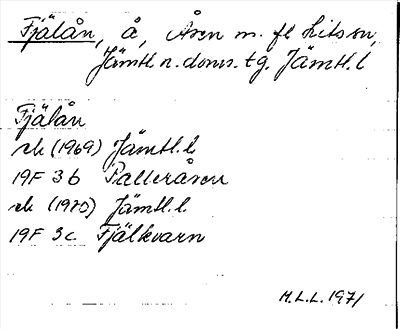 Fjälån, å, Åsen m. fl Lits sn,
Jämtl n. doms. tg. Jämtl. l
Fjälån
ek (1969) Jämtl. l.
19F 3b Palleråsen
ek (1970) Jämtl. l.
19F 3c Fjälkvarn
H.L.L. 1971